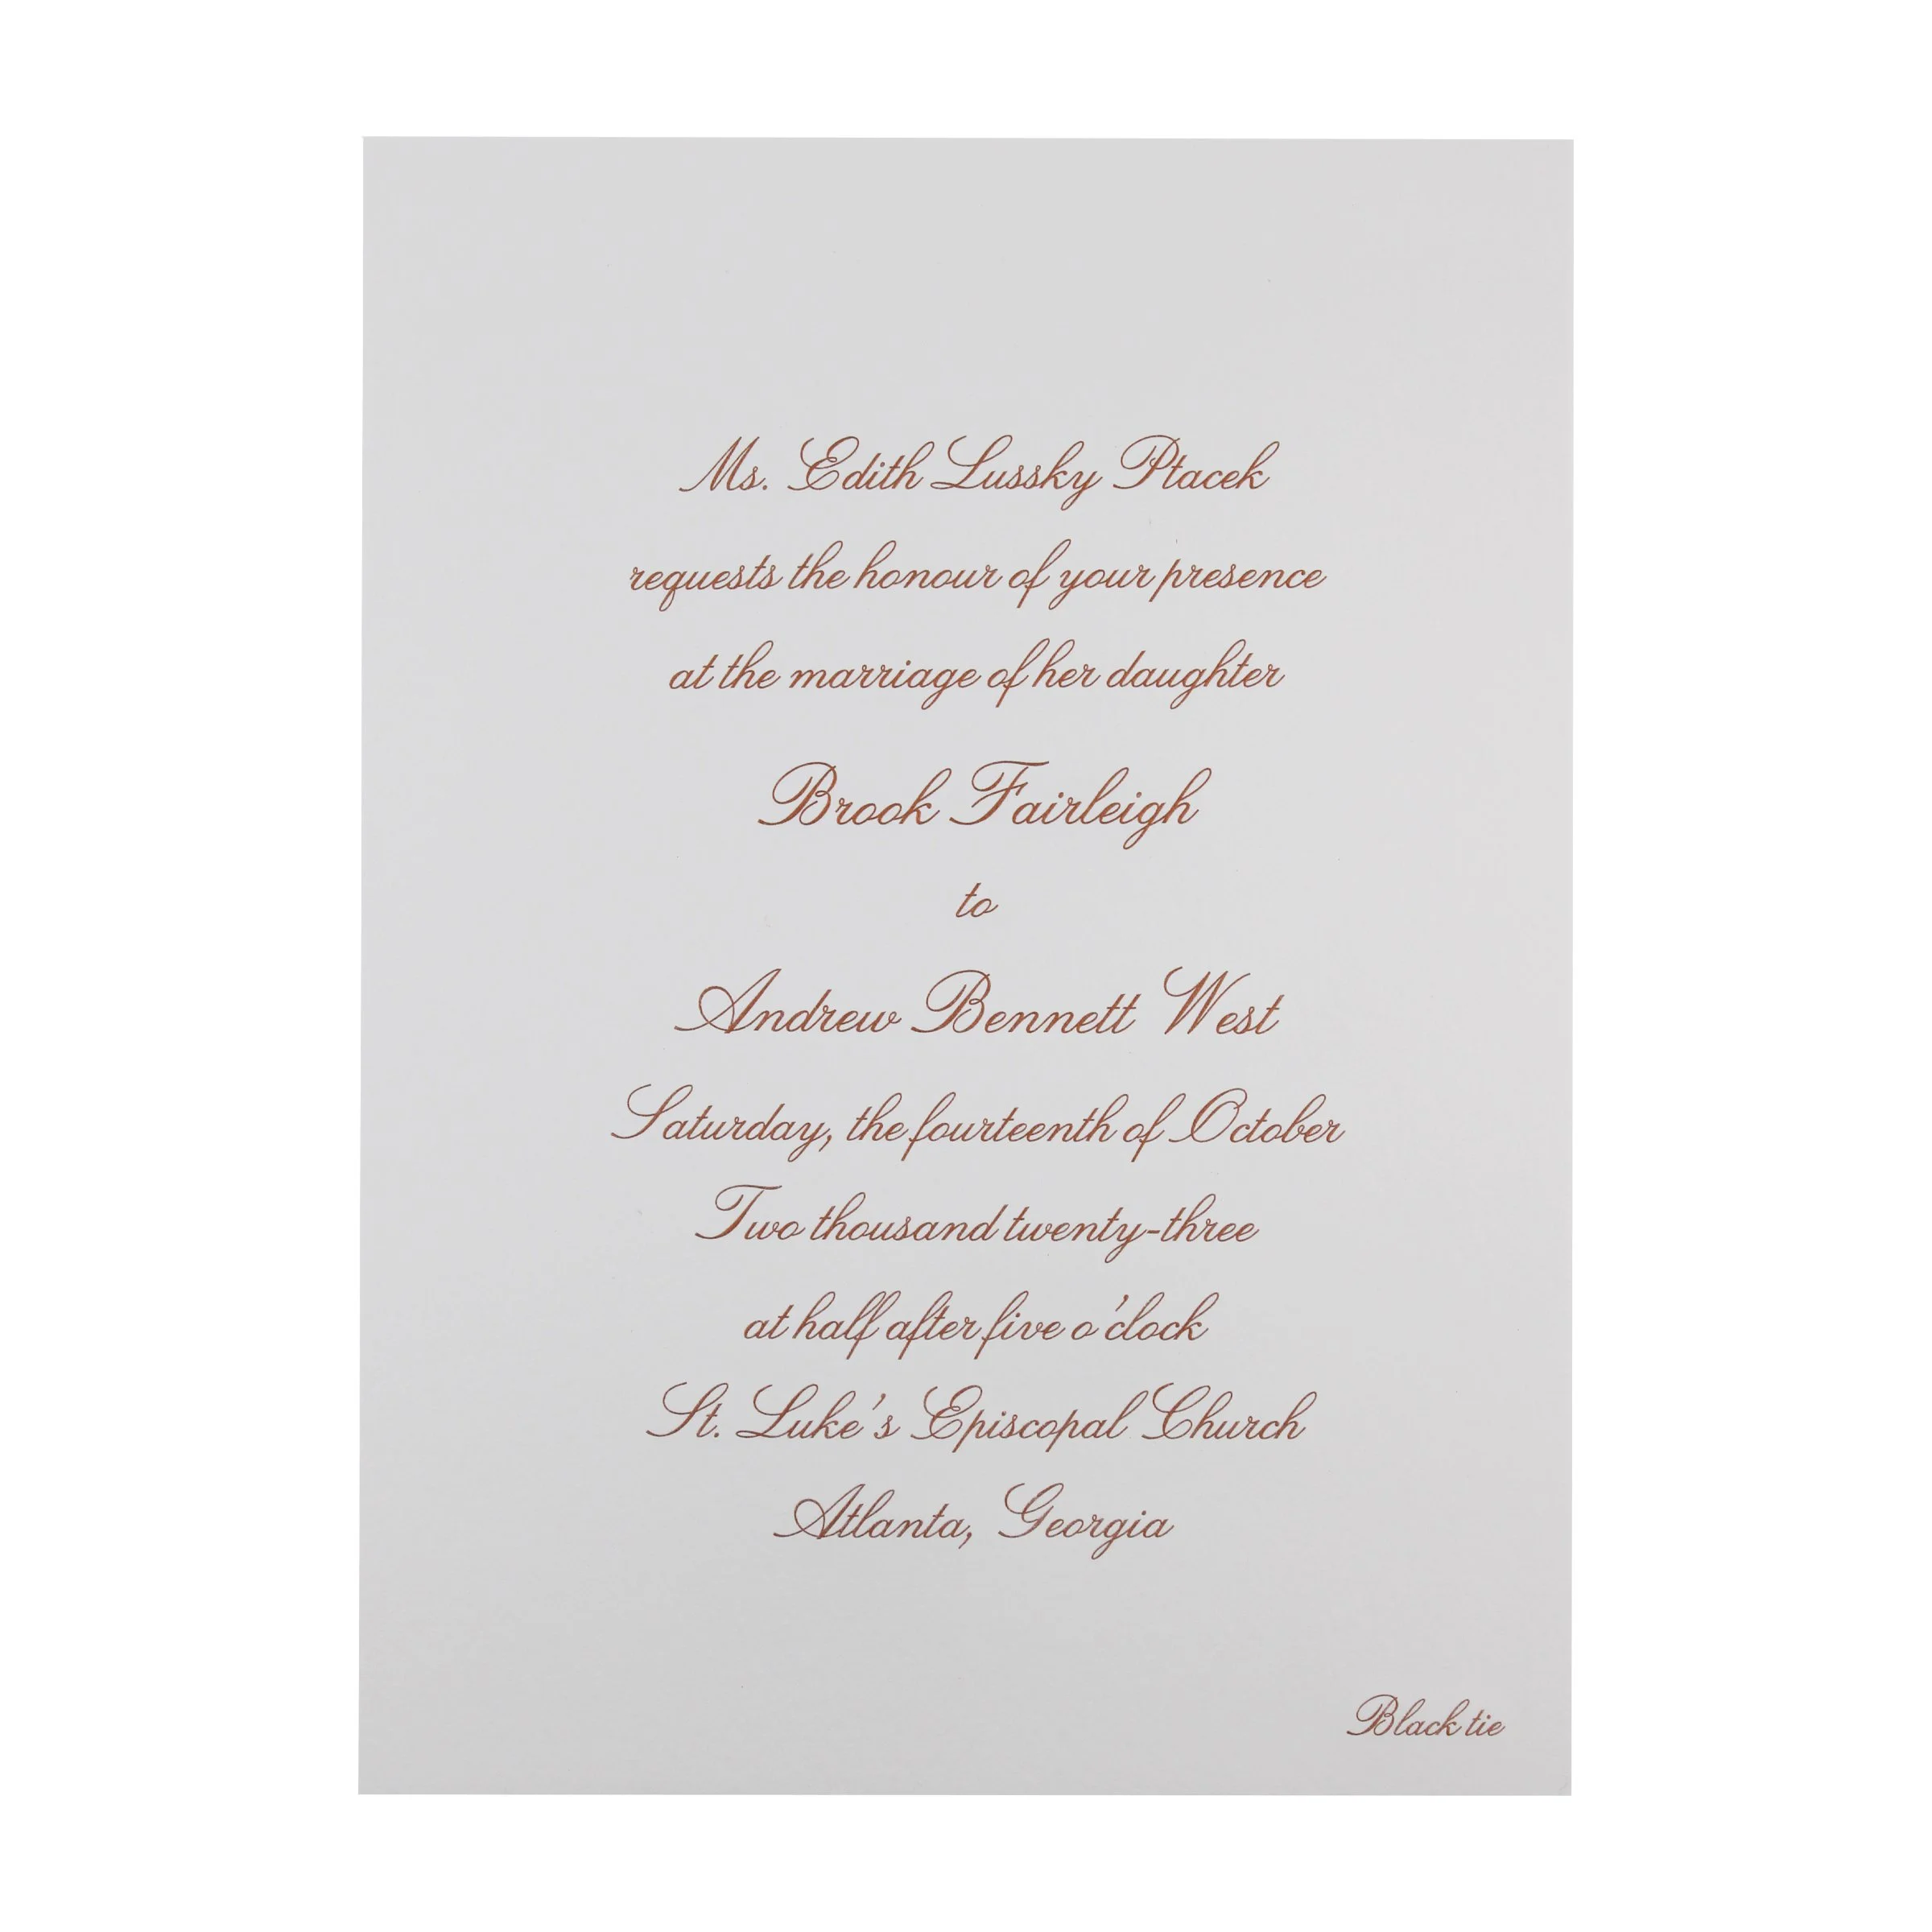 Ms. Edith Lussky Ptacek
requests the honour of your presence
at the marriage of her daughter
Brook Fairleigh
to
Andrew Bennett West
Saturday, the fourteenth of October
Two thousand twenty-three
at half after five o'clock
St. Luke's Episcopal Church
Atlanta, Georgia
Black tie